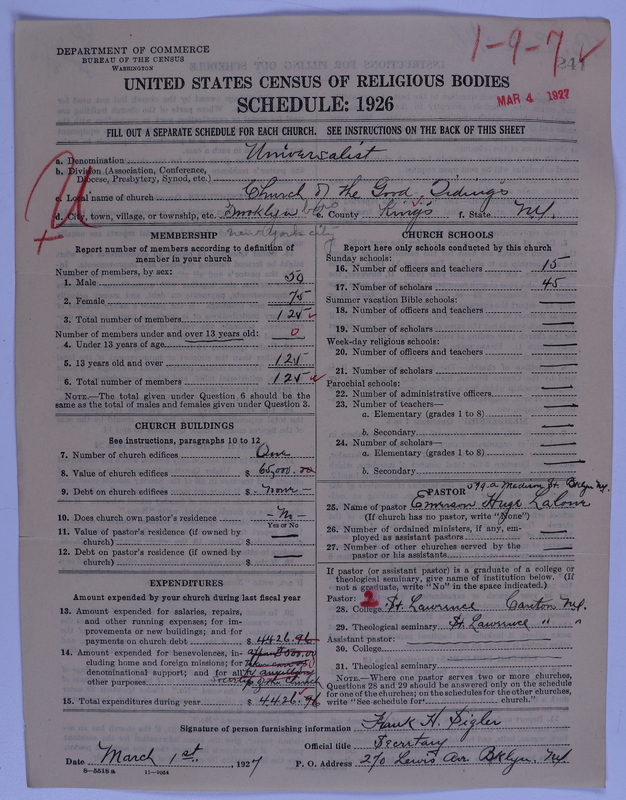 1-9-7
DEPARTMENT OF COMMERCE
BUREAU OF THE CENSUS
WASHINGTON
241
UNITED STATES CENSUS OF RELIGIOUS BODIES
SCHEDULE: 1926
MAR 4 1927
FILL OUT A SEPARATE SCHEDULE FOR EACH CHURCH. SEE INSTRUCTIONS ON THE BACK OF THIS SHEET
a. Denomination Universalist
b. Division (Association, Conference,
Diocese, Presbytery, Synod, etc.)
c. Local name of church Church of the Good Tidings
d. City, town, village, or township, etc. Brooklyn boro e. County Kings f. State N.Y.
New York City
U
MEMBERSHIP
Report number of members according to definition of
member in your church
Number of members, by sex:
1. Male 50
2. Female 75
3. Total number of members 125
Number of members under and over 13 years old:
4. Under 13 years of age 0
5. 13 years old and over 125
6. Total number of members 125
NOTE.—The total given under Question 6 should be the
same as the total of males and females given under Question 3.
CHURCH BUILDINGS
See instructions, paragraphs 10 to 12
7. Number of church edifices One
8. Value of church edifices $ 65,000.00
9. Debt on church edifices $ none
10. Does church own pastor's residence No
Yes or No
11. Value of pastor's residence (if owned by
church) $
12. Debt on pastor's residence (if owned by
church) $
EXPENDITURES
Amount expended by your church during last fiscal year
13. Amount expended for salaries, repairs,
and other running expenses; for im-
provements or new buildings; and for
payments on church debt $ 4426.96
14. Amount expended for benevolences, in-
cluding home and foreign missions; for
denominational support; and for all
other purposes
15. Total expenditures during year $ 4426.96
CHURCH SCHOOLS
Report here only schools conducted by this church
Sunday schools:
16. Number of officers and teachers 15
17. Number of scholars 45
Summer vacation Bible schools:
18. Number of officers and teachers
19. Number of scholars
Week-day religious schools:
20. Number of officers and teachers
21. Number of scholars
Parochial schools:
22. Number of administrative officers
23. Number of teachers—
a. Elementary (grades 1 to 8)
b. Secondary
24. Number of scholars—
a. Elementary (grades 1 to 8)
b. Secondary
PASTOR
599a Madison St. Bklyn N.Y.
25. Name of pastor Emerson Hugh Lalone
(If church has no pastor, write "None")
26. Number of ordained ministers, if any, em-
ployed as assistant pastors
27. Number of other churches served by the
pastor or his assistants
If pastor (or assistant pastor) is a graduate of a college or
theological seminary, give name of institution below. (If
not a graduate, write "No" in the space indicated.)
Pastor: 2
28. College St. Lawrence Canton N.Y.
29. Theological seminary St. Lawrence " "
Assistant pastor:
30. College
31. Theological seminary
NOTE.—Where one pastor serves two or more churches,
Questions 28 and 29 should be answered only on the schedule
for one of the churches; on the schedules for the other churches,
write "See schedule for church."
Signature of person furnishing information Frank H. Sigler
Official title Secretary
Date March 1st, 1927 P. O. Address 270 Lewis Av. Bklyn. N.Y.
8—5518 a 11—9034